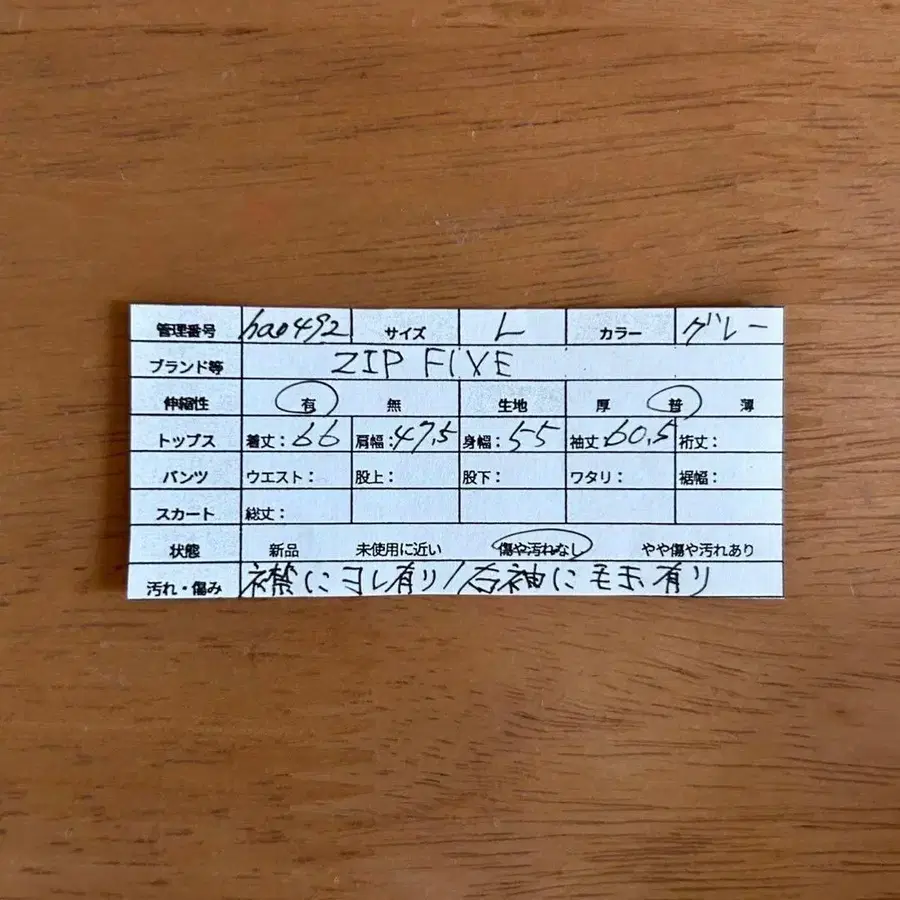 管理番号 hao492 サイズ L カラー グレー
ブランド等 ZIP FIVE
伸縮性 有 無 生地 厚 普 薄
トップス 着丈：66 肩幅：47.5 身幅：55 袖丈：60.5 裄丈：
パンツ ウエスト： 股上： 股下： ワタリ： 裾幅：
スカート 総丈：
状態 新品 未使用に近い 傷や汚れなし やや傷や汚れあり
汚れ・傷み 襟にヨレ有り/右袖にモホ有り